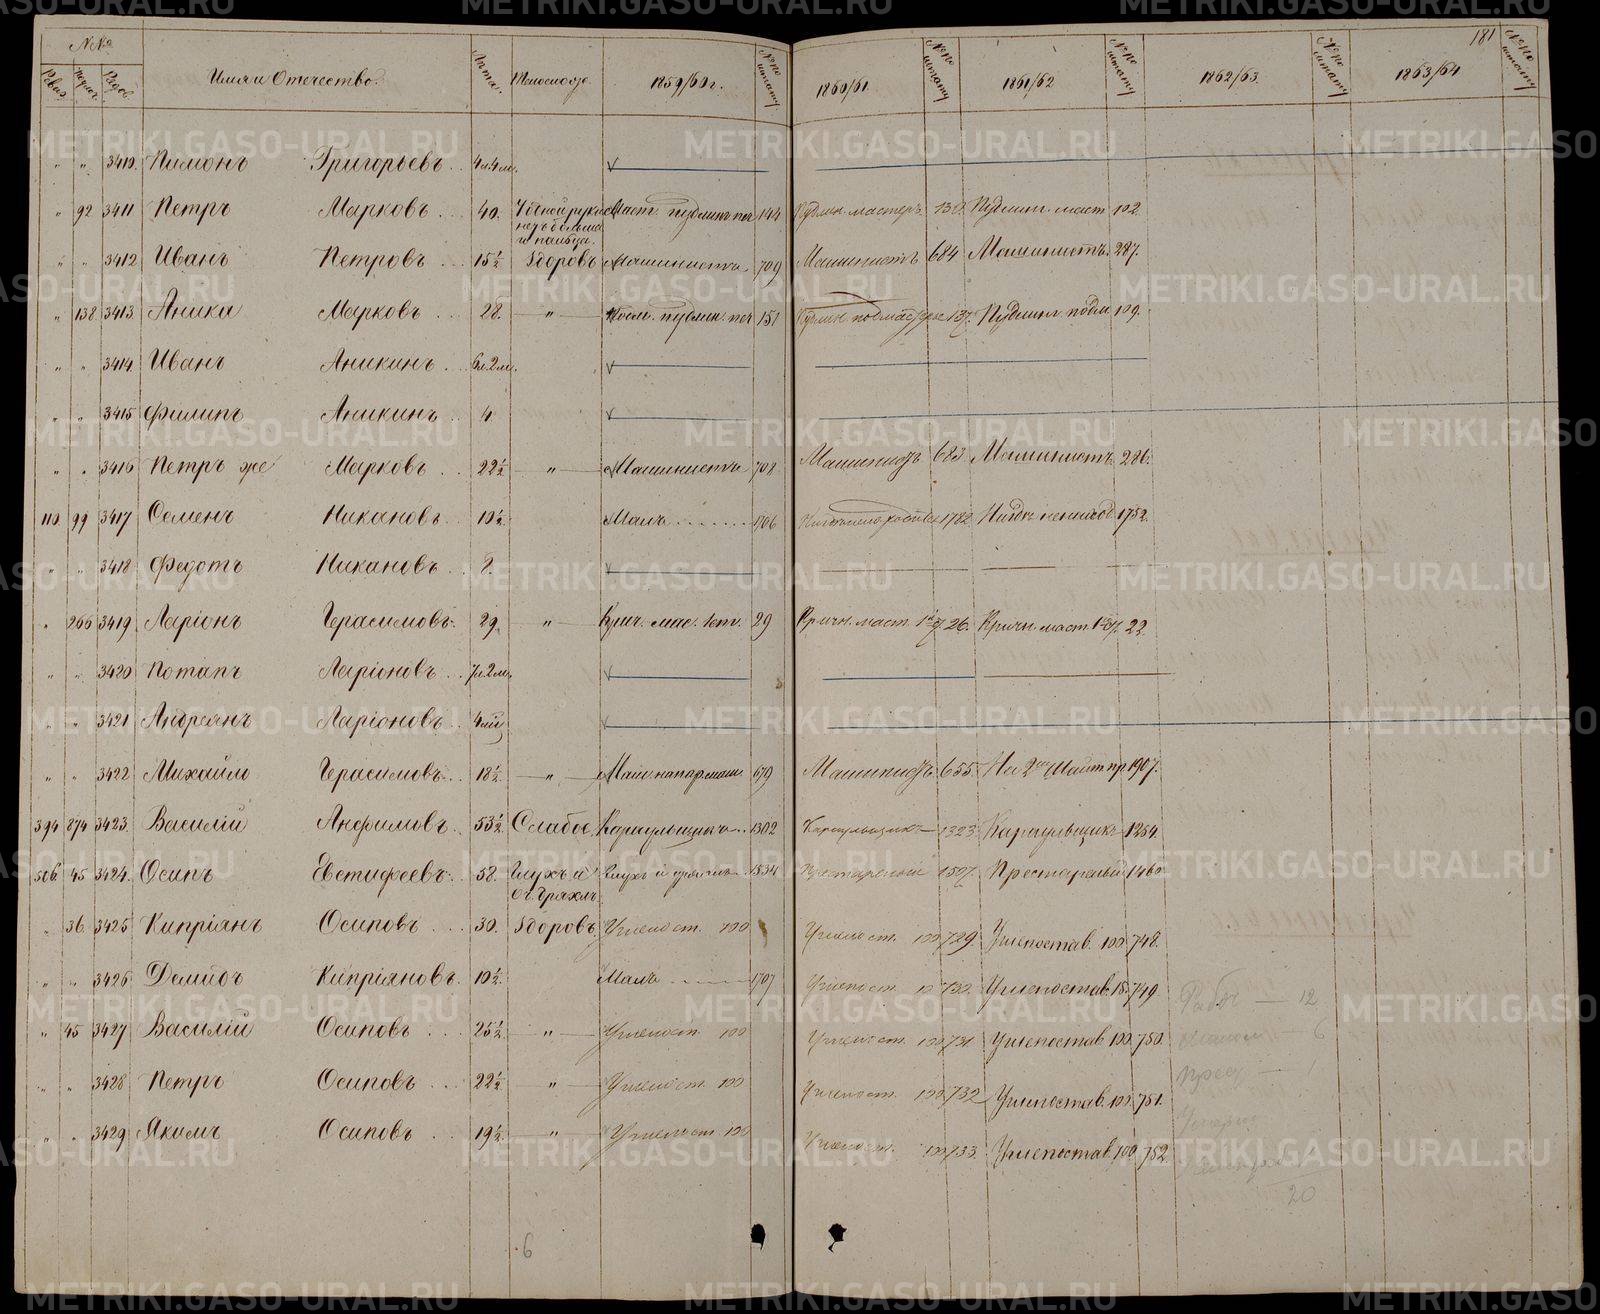 181
№№
Имя и Отечество.
Лета.
1859/60 г.
№ по штату
1860/61
№ по штату
1861/62
№ по штату
1862/63.
№ по штату
1863/64
№ по штату
" " 3410. Пимонъ Григорьевъ 4 л. 4 м.
" 92 3411 Петръ Марковъ 40. У одной руки нетъ больша го пальца. Маст. пудлинг. печ 144 Пудлин. мастеръ. 130. Пудлинг. маст 102.
" " 3412 Иванъ Петровъ 15½ Здоровъ Машинистъ 709 Машинистъ 684 Машинистъ. 287.
" 138 3413 Аника Марковъ 28. " Подм. пудлин. печ 151 Пудлин подмастерье 137. Пудлинг. подм 109.
" " 3414 Иванъ Аникинъ 6 л. 2 м.
" " 3415 Филипъ Аникинъ 4
" " 3416 Петръ же Марковъ 22½ " Машинистъ 708 Машинистъ 683 Машинистъ 286.
110 99 3417 Семенъ Никановъ 10½ Малъ 1706 1782. 1752.
" " 3418 Федотъ Никановъ 8.
" 266 3419 Ларіонъ Герасимовъ 29 " Крич. мас. 1 ст. 29 Кричн. маст. 26. Кричн. маст. 22.
" " 3420 Потапъ Ларіоновъ 7 л. 2 м.
" " 3421 Андреянъ Ларіоновъ 4
" " 3422 Михайло Герасимовъ 18½ " 679 Машинистъ 655 1907.
394 874 3423. Василій Анфимовъ 53½ Слабое Караульщикъ 1302 Караульщикъ 1323. Караульщикъ 1254.
506 45 3424. Осипъ Евстифеевъ 58. Глухъ и одряхлъ 1834 Престарелый 1507. Престарелый 1460
" 36 3425 Кипріянъ Осиповъ 30. Здоровъ Углепост. 100 Углепост. 100. 729 Углепостав. 100. 748.
" " 3426 Демидъ Кипріяновъ. 10½ Малъ 1707 Углепост. 730. Углепостав. 749
" 45 3427 Василій Осиповъ 25½ " Углепост. 100 Углепост. 100. 731 Углепостав 100. 750.
" " 3428 Петръ Осиповъ 22½ " Углепост. 100 Углепост. 100. 732 Углепостав. 100. 751.
" " 3429 Якимъ Осиповъ 19½ " Углепост 100 Углепост. 100 733. Углепостав 100. 752.
12
6
20
6
METRIKI.GASO-URAL.RU